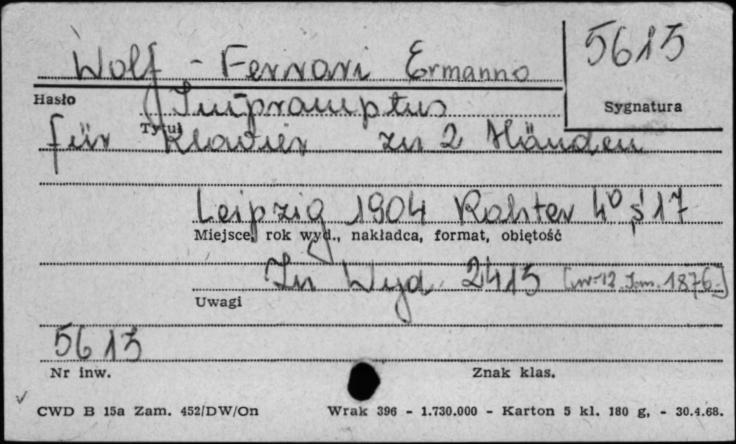 Wolf - Ferrari Ermanno
5615
Hasło
Impromptus
Sygnatura
Tytuł
für Klavier zu 2 Händen
Leipzig 1904 Rahter 4° s 17
Miejsce, rok wyd., nakładca, format, objętość
In Wyd. 2415 [ur. 12. Jan. 1876.]
Uwagi
5615
Nr inw.
Znak klas.
CWD B 15a Zam. 452/DW/On Wrak 396 - 1.730.000 - Karton 5 kl. 180 g, - 30.4.68.